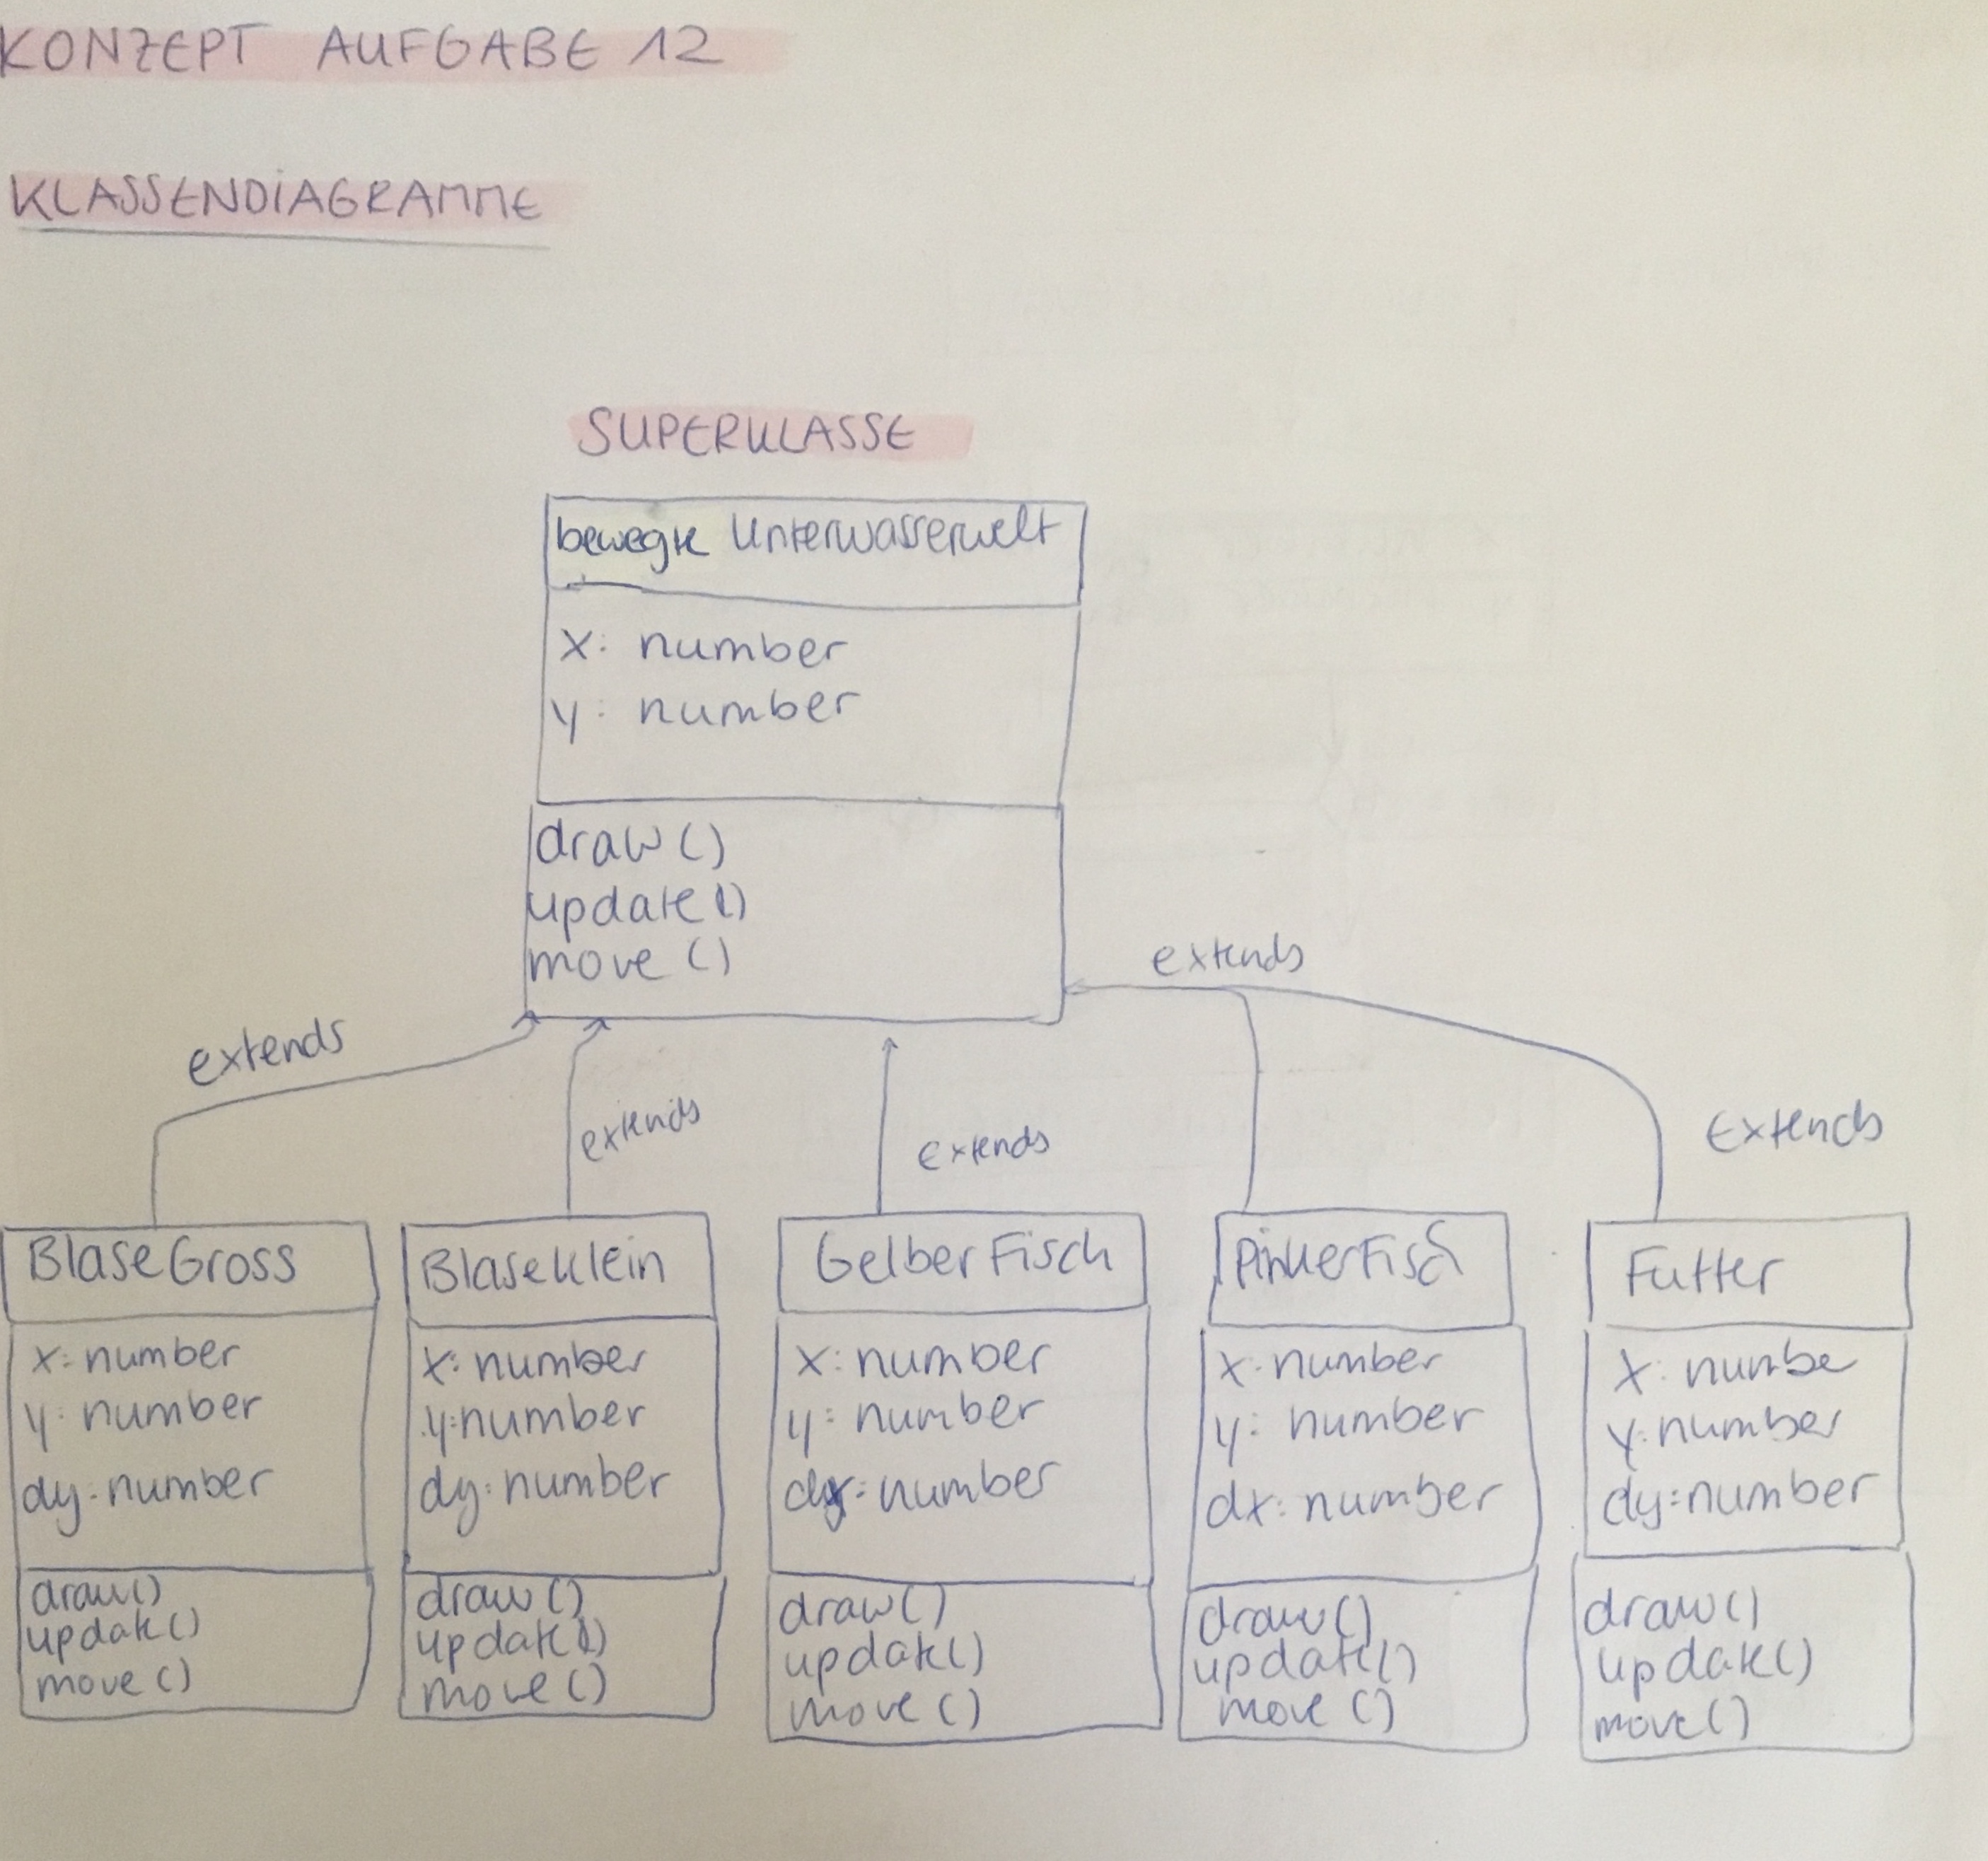 KONZEPT AUFGABE 12
KLASSENDIAGRAMME
SUPERKLASSE
bewegte Unterwasserwelt
x: number
y: number
draw()
update()
move()
extends
extends
extends
extends
extends
BlaseGross
x: number
y: number
dy: number
draw()
update()
move()
BlaseKlein
x: number
y: number
dy: number
draw()
update()
move()
GelberFisch
x: number
y: number
dx: number
draw()
update()
move()
PinkerFisch
x: number
y: number
dx: number
draw()
update()
move()
Futter
x: numbe
y: number
dy: number
draw()
update()
move()